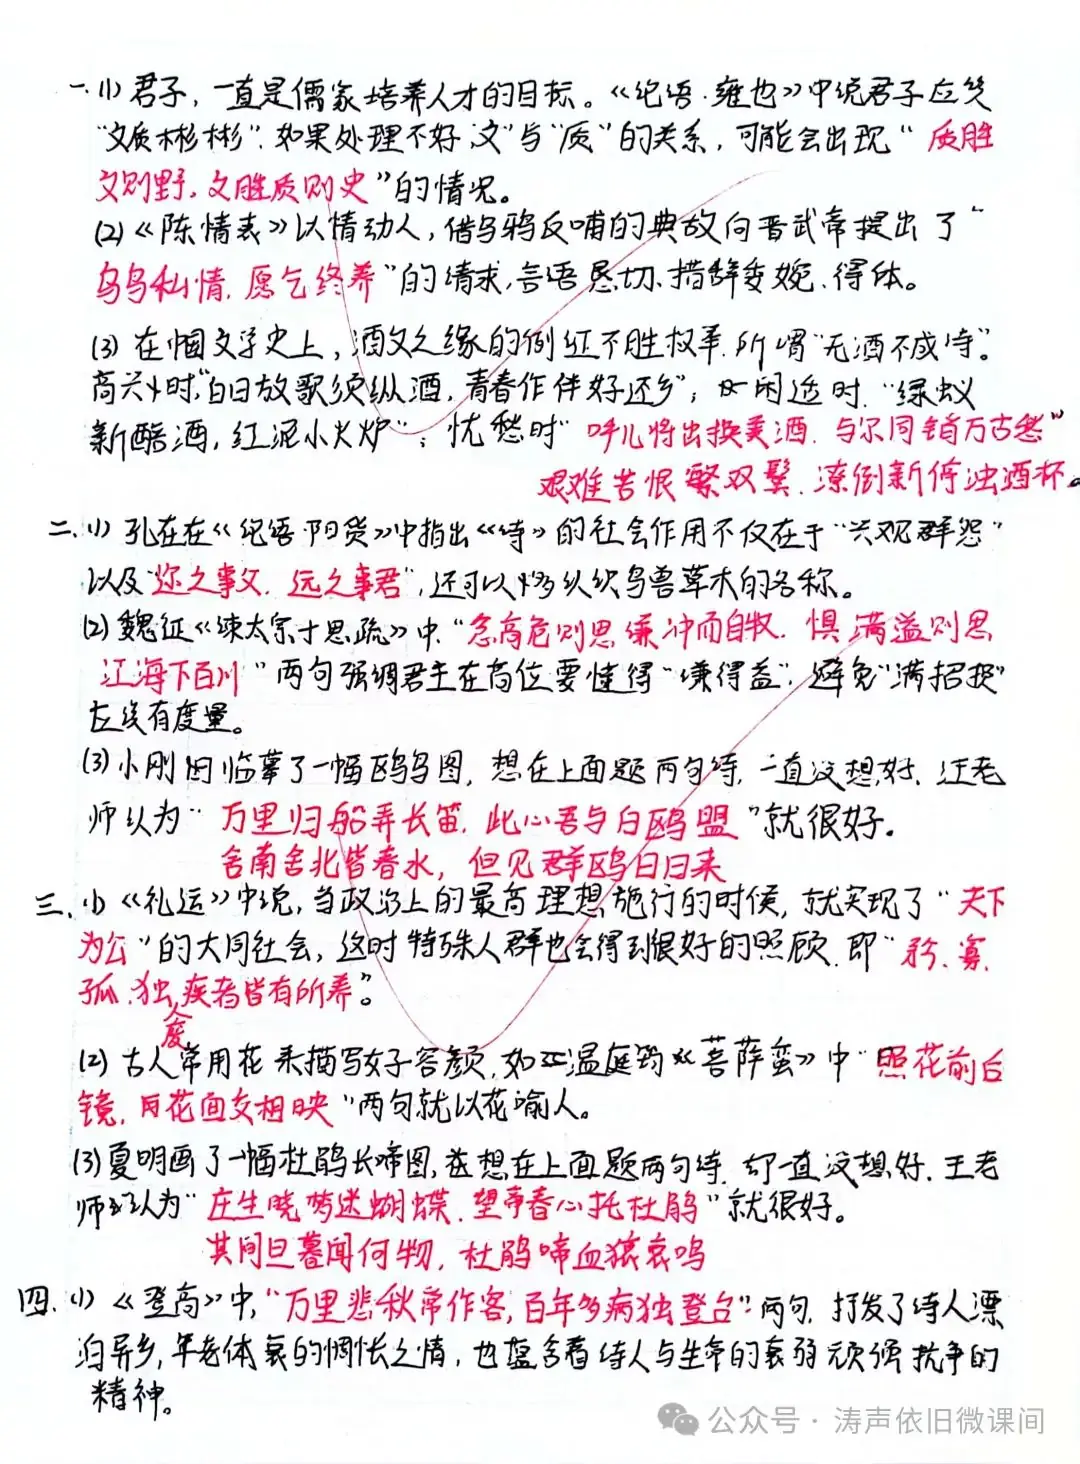 一.(1) 君子，一直是儒家培养人才的目标。《论语·雍也》中说君子应
"文质彬彬". 如果处理不好"文"与"质"的关系，可能会出现"质胜
文则野，文胜质则史"的情况。
(2)《陈情表》以情动人，借乌鸦反哺的典故向晋武帝提出了"
乌鸟私情，愿乞终养"的请求，言语恳切，措辞委婉、得体。
(3) 在中国文学史上，酒文之缘的例证不胜枚举，所谓"无酒不成诗"。
高兴时，"白日放歌须纵酒，青春作伴好还乡"；闲适时"绿蚁
新醅酒，红泥小火炉"；忧愁时"呼儿将出换美酒，与尔同销万古愁"
艰难苦恨繁双鬓，潦倒新停浊酒杯。
二.(1) 孔子在《论语·阳货》中指出《诗》的社会作用不仅在于"兴观群怨"
以及"迩之事父，远之事君"，还可以多认识鸟兽草木的名称。
(2) 魏征《谏太宗十思疏》中，"念高危则思谦冲而自牧，惧满溢则思
江海下百川"两句强调君主在高位要懂得"谦得益"，避免"满招损"
有度量。
(3) 小刚因临摹了一幅鸥鸟图，想在上面题两句诗，一直没想好，汪老
师认为"万里归船弄长笛，此心吾与白鸥盟"就很好。
舍南舍北皆春水，但见群鸥日日来
三.(1)《礼运》中说，当政治上的最高理想施行的时候，就实现了"天下
为公"的大同社会，这时特殊人群也会得到很好的照顾，即"矜、寡、
孤、独、疾者皆有所养"。
废
(2) 古人常用花来描写女子容颜，如温庭筠《菩萨蛮》中"照花前后
镜，花面交相映"两句就以花喻人。
(3) 夏明画了一幅杜鹃长啼图，想在上面题两句诗，却一直没想好，王老
师认为"庄生晓梦迷蝴蝶，望帝春心托杜鹃"就很好。
其间旦暮闻何物，杜鹃啼血猿哀鸣
四.(1)《登高》中，"万里悲秋常作客，百年多病独登台"两句，抒发了诗人漂
泊异乡，年老体衰的惆怅之情，也蕴含着诗人与生命的衰弱顽强抗争的
精神。
公众号·涛声依旧微课间